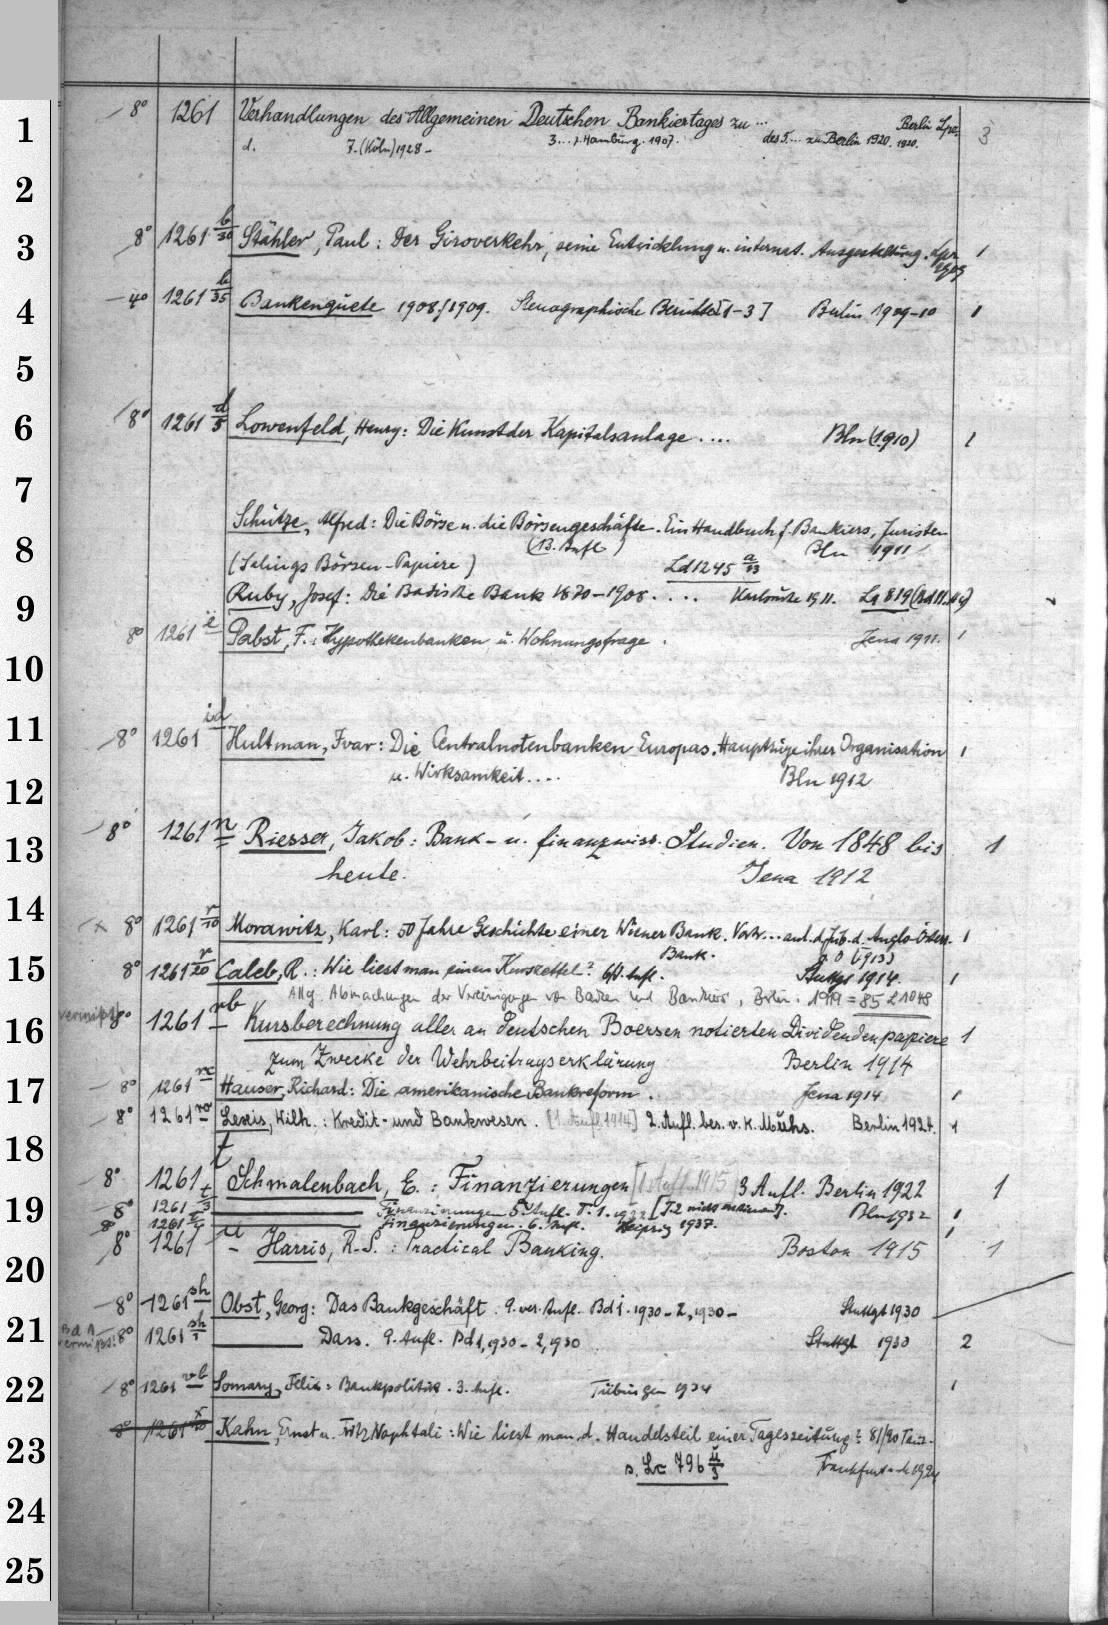 1
8° 1261 Verhandlungen des Allgemeinen Deutschen Bankiertages zu ... Berlin Lpz. 3
d. 7. (Köln) 1928 – 3... z. Hamburg. 1907. des 5.... zu Berlin 1920. 1920.
2
3
8° 1261 b/30 Stähler, Paul: Der Giroverkehr, seine Entwicklung u. internat. Ausgestaltung. Lpz. 1909 1
4
4° 1261 b/35 Bankenquete 1908/1909. Stenographische Berichte [1-3] Berlin 1909-10 1
5
6
8° 1261 d/5 Lowenfeld, Henry: Die Kunst der Kapitalsanlage .... Bln (1910) 1
7
8
Schütze, Alfred: Die Börse u. die Börsengeschäfte. Ein Handbuch f. Bankiers, Juristen
(13. Aufl.) Bln 1911
(Salings Börsen-Papiere) Ld 1245 a/33
9
Ruby, Josef: Die Badische Bank 1870-1908 .... Karlsruhe 1911.
8° 1261 Pabst, F.: Hypothekenbanken u. Wohnungsfrage. Jena 1911. 1
10
11
8° 1261 id Hultman, Ivar: Die Centralnotenbanken Europas. Hauptzüge ihrer Organisation 1
12
u. Wirksamkeit .... Bln 1912
13
8° 1261 n Riesser, Jakob: Bank- u. finanzwiss. Studien. Von 1848 bis 1
heute. Jena 1912
14
8° 1261 r/10 Morawitz, Karl: 50 Jahre Geschichte einer Wiener Bank. Vortr... anl. d. Jub. d. Anglo-Österr. 1
Bank. (1913)
15
8° 1261 r/20 Caleb, R.: Wie liest man einen Kurszettel? Aufl. Stuttgt 1914. 1
Allg. Abmachungen der Vereinigungen von Banken und Bankiers, Berlin. 1919 = 85 L 1048
16
vermißt 8° 1261 rb Kursberechnung aller an deutschen Boersen notierten Dividendenpapiere 1
zum Zwecke der Wehrbeitragserklärung Berlin 1914
17
8° 1261 rc Hauser, Richard: Die amerikanische Bankreform. Jena 1914 1
8° 1261 ro Lexis, Wilh.: Kredit- und Bankwesen. [1. Aufl. 1914] 2. Aufl. bes. v. K. Muhs. Berlin 1929. 1
18
8° 1261 t Schmalenbach, E.: Finanzierungen [1. Aufl. 1915] 3 Aufl. Berlin 1922 1
19
8° 1261 t/3 Finanzierungen 5. Aufl. T. 1. 1932 [T. 2 nicht erschienen]. Bln 1932 1
8° 1261 Finanzierungen. 6. Aufl. Leipzig 1937. 1
8° 1261 u Harris, R.S.: Practical Banking. Boston 1915 1
20
8° 1261 sh Obst, Georg: Das Bankgeschäft. 9. ver. Aufl. Bd 1. 1930 - 2, 1930 – Stuttgt 1930
21
Bd 1 vermißt! 8° 1261 sh/1 Dass. 9. Aufl. Bd 1, 1930 - 2, 1930 Stuttgt 1930 2
22
8° 1261 vb Somary, Felix: Bankpolitik. 3. Aufl. Tübingen 1934 1
8° 1261 Kahn, Ernst u. Fritz Naphtali: Wie liest man d. Handelsteil einer Tageszeitung? 81/90 Taus.
23
s. Lc 796 ü/5 Frankfurt 1924
24
25